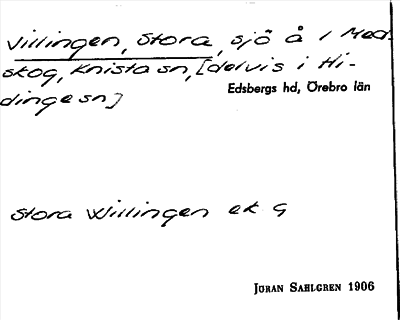 Villingen, Stora, sjö å 1 Med.
skog, Knista sn, [delvis i Hi-
dinge sn]
Edsbergs hd, Örebro län
Stora Willingen ek G
Johan Sahlgren 1906